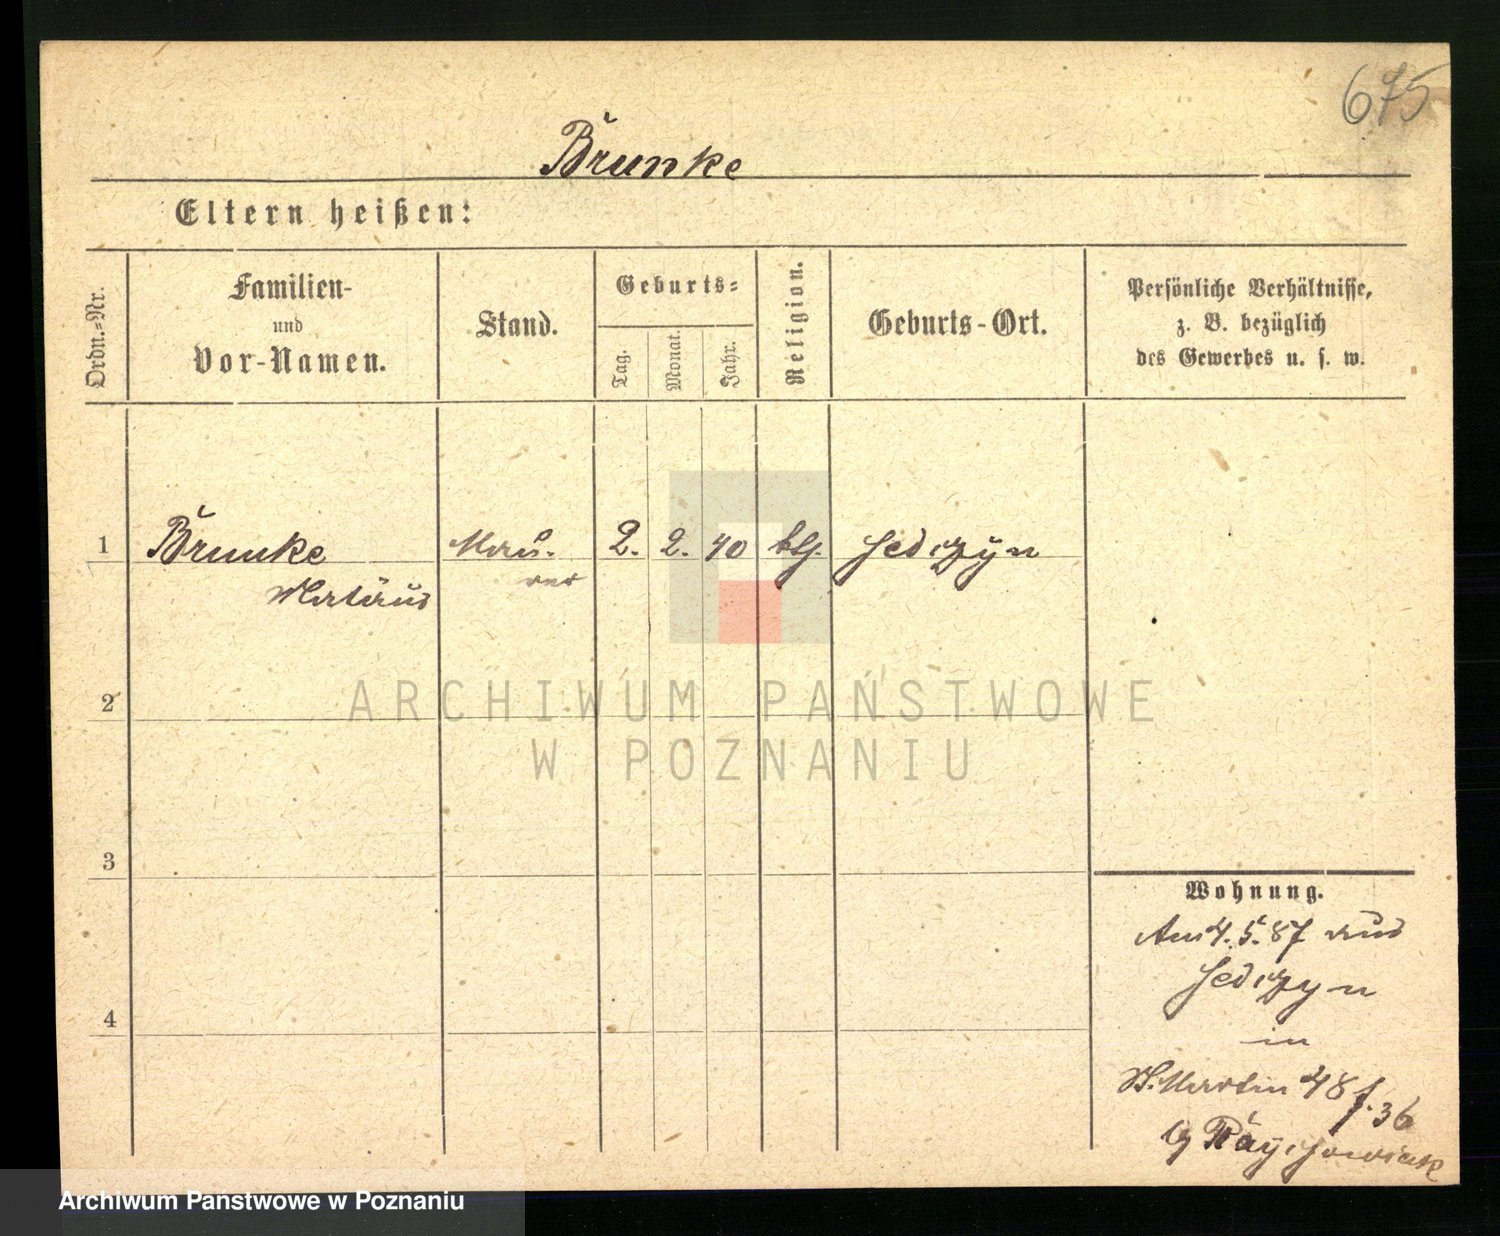 675
Brunke
Eltern heißen:
Ordn.-Nr.
Familien-
und
Vor-Namen.
Stand.
Geburts-
Tag.
Monat.
Jahr.
Religion.
Geburts-Ort.
Persönliche Verhältnisse,
z. B. bezüglich
des Gewerbes u. s. w.
1 Brunke Mau- 2. 2. 40 kth.
Matäus rer
2
3
4
Wohnung.
Am 4. 5. 87 aus
in
St. Martin 48
36
ARCHIWUM PAŃSTWOWE
W POZNANIU
Archiwum Państwowe w Poznaniu